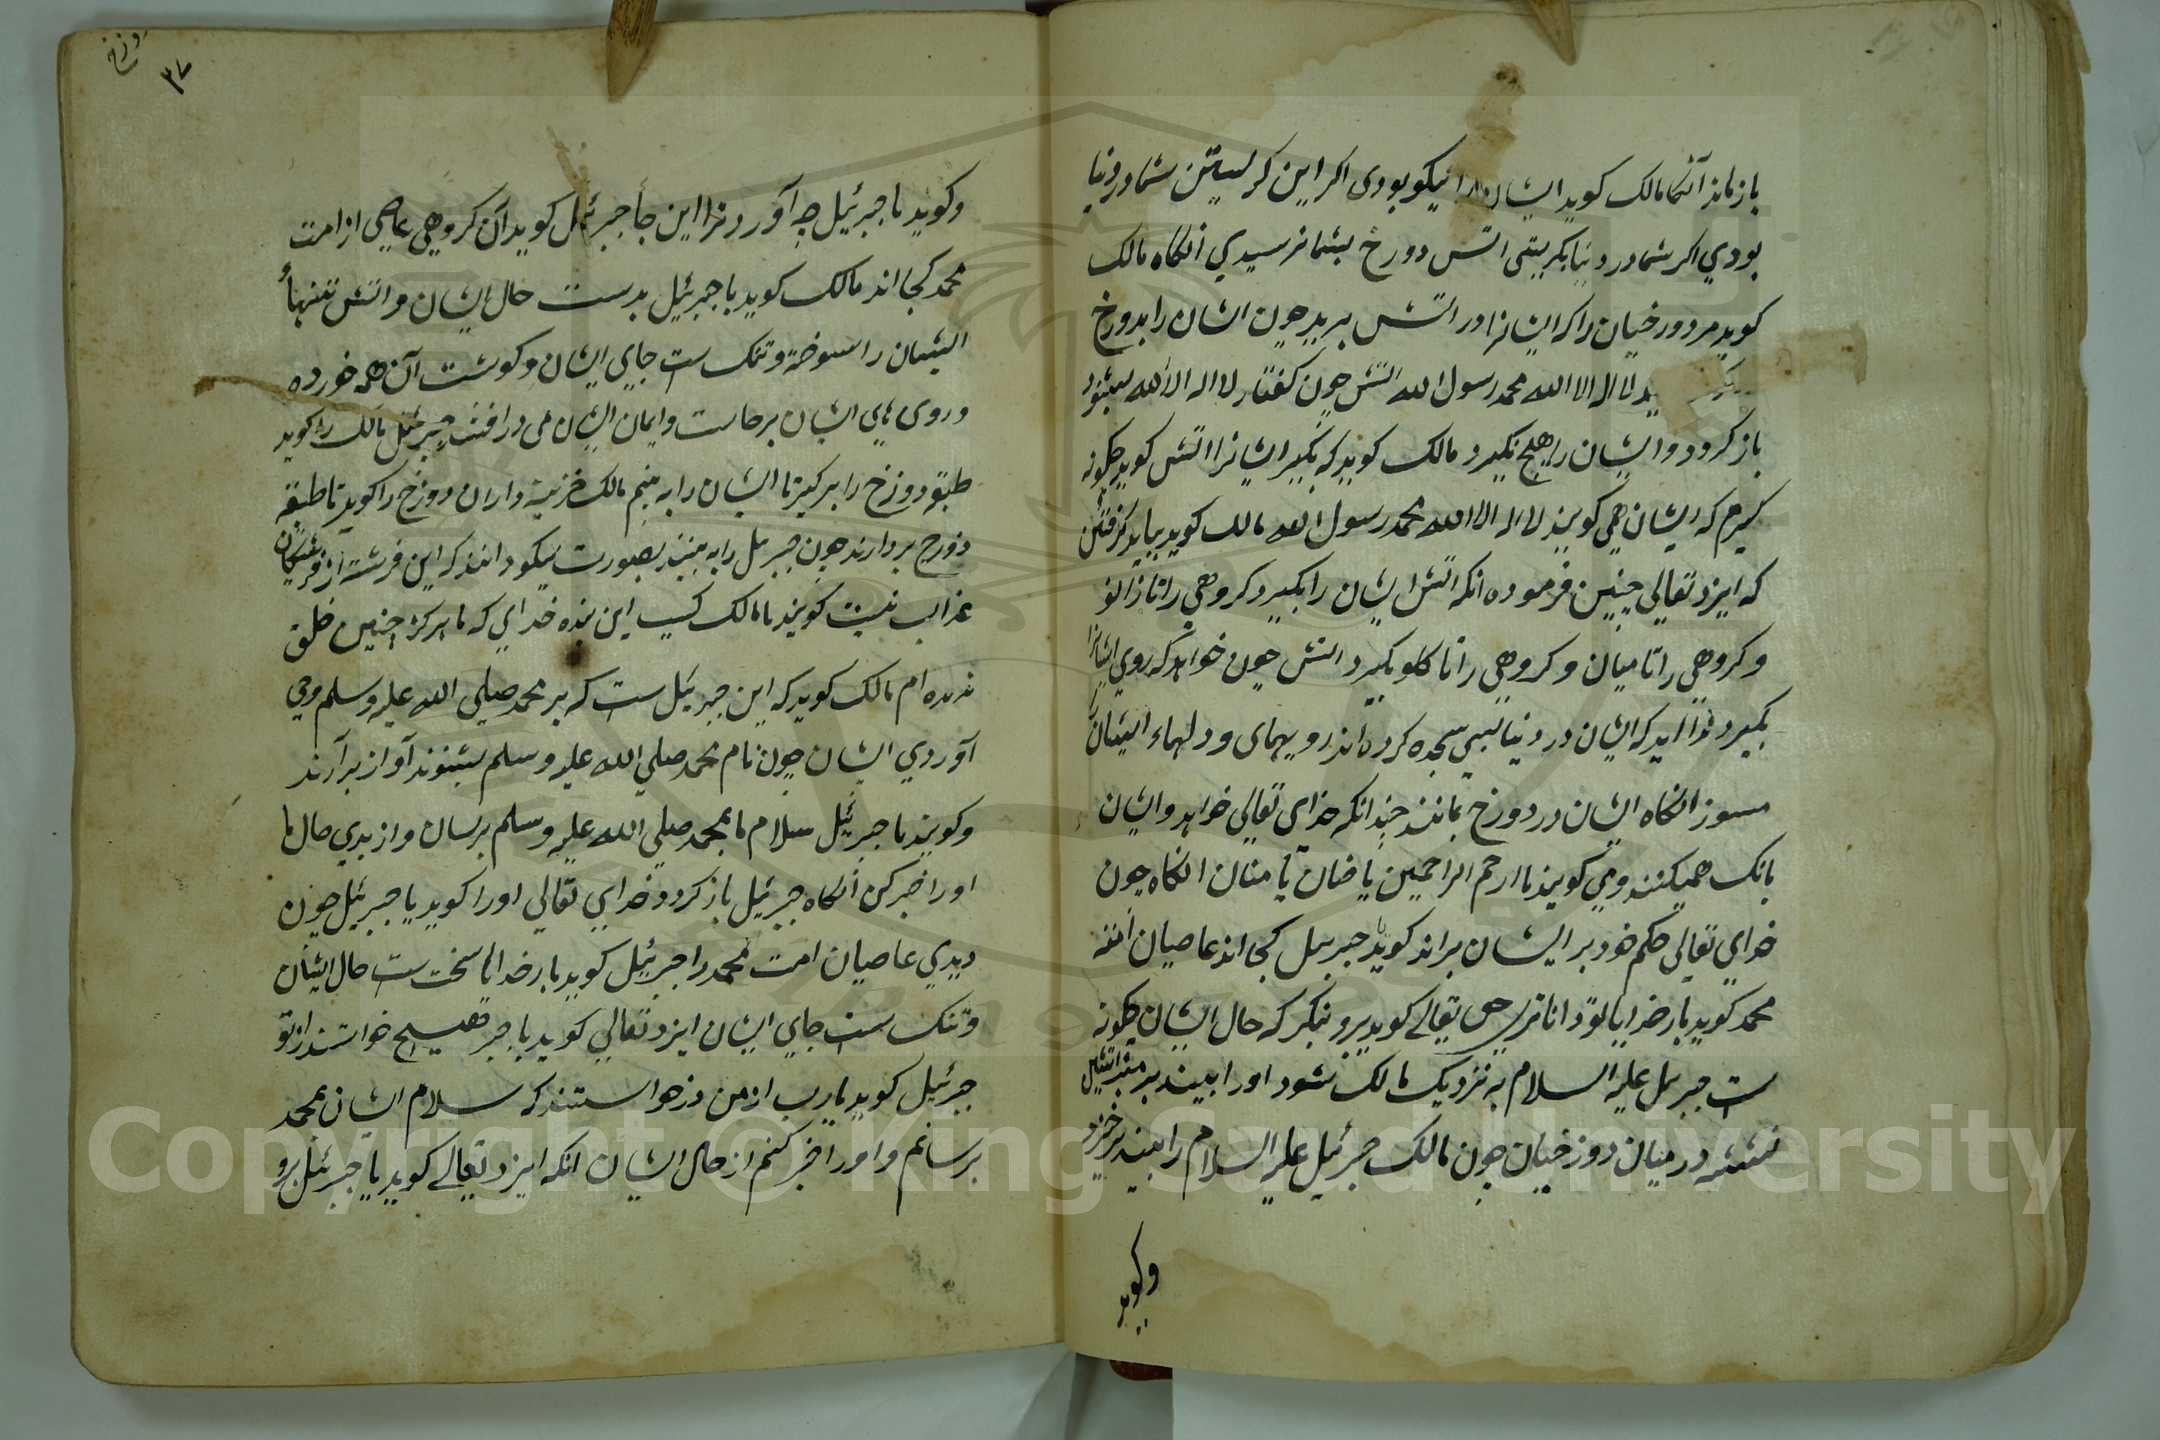 باز ماند آنکا مالک کوید ایشان را نیکو بودی اکر این کریستن شما در دنیا
بودي اکر شما در دنیا بکریستی اتش دوزخ بشما نرسیدي آنکاه مالک
کوید مر دوزخیان را که ایشانرا در اتش برید چون ایشان را بدوزخ
لا اله الا الله محمد رسول الله اتش چون کفتار لا اله الا الله بشنود
باز کردد و ایشان را هیچ نکیرد مالک کوید که بکیر ایشانرا اتش کوید چکونه
کیرم که ایشان همی کویند لا اله الا الله محمد رسول الله مالک کوید بباید کرفتن
که ایزد تعالي چنین فرموده انکه اتش ایشان را بکیرد کروهي را تا زانو
و کروهي را تا میان و کروهي را تا کلو بکیرد اتش چون خواهد که روي ایشانرا
بکیرد ندا اید که ایشان در دنیا بسي سجده کرده اند رویهای و دلهاء ایشان را
مسوز انکاه ایشان در دوزخ بمانند چندانکه خدای تعالي خواهد و ایشان
بانک همیکنند و مي کویند یا ارحم الراحمین یا حنان یا منان انکاه چون
خداي تعالي حکم خود بر ایشان براند کوید یا جبریل کجا اند عاصیان امت
محمد کوید بار خدایا تو داناتري حق تعالے کوید برو بنکر که حال ایشان چکونه
است جبریل علیه السلام به نزدیک مالک شود اورا بیند بر منبر اتشین
نشسته در میان دوزخیان چون مالک جبرئیل علیه السلام را بیند برخیزد
وکوید
۳۷
وکوید یا جبرئیل چه آورد ترا این جا جبرئیل کوید آن کروهي عاصي از امت
محمد کجا اند مالک کوید یا جبرئیل بدست حال ایشان و اتش تنهاء
ایشان را سوخته و تنک است جاي ایشان و کوشت آن همه خورده
و روی هاي ایشان برجاست و ایمان ایشان مي درافشد جبرئیل مالک را کوید
طبقه دوزخ را برکیر تا ایشان را به بینم مالک خزینه داران دوزخ را کوید تا طبقه
دوزخ بردارند چون جبریل را به بینند بصورت نیکو دانند که این فرشته از فرشتکان
عذاب نیست کویند یا مالک کیست این بنده خداي که ما هرکز چنین خلق
ندیده ام مالک کوید که این جبرئیل ست که بر محمد صلي الله علیه وسلم وحي
آوردي ایشان چون نام محمد صلي الله علیه وسلم بشنوند آواز برآرند
و کویند یا جبرئیل سلام ما بمحمد صلي الله علیه وسلم برسان و از بدي حال ما
اورا خبر کن آنکاه جبرئیل باز کردد خداي تعالي اورا کوید یا جبرئیل چون
دیدي عاصیان امت محمد را جبرئیل کوید بار خدایا سخت ست حال ایشان
و تنک ست جاي ایشان ایزد تعالي کوید یا جبرئیل هیچ خواستند از تو
جبرئیل کوید یا رب از من درخواستند که سلام ایشان بمحمد
برسانم و اورا خبر کنم از حال ایشان انکه ایزد تعالے کوید یا جبرئیل برو
Copyright © King Saud University